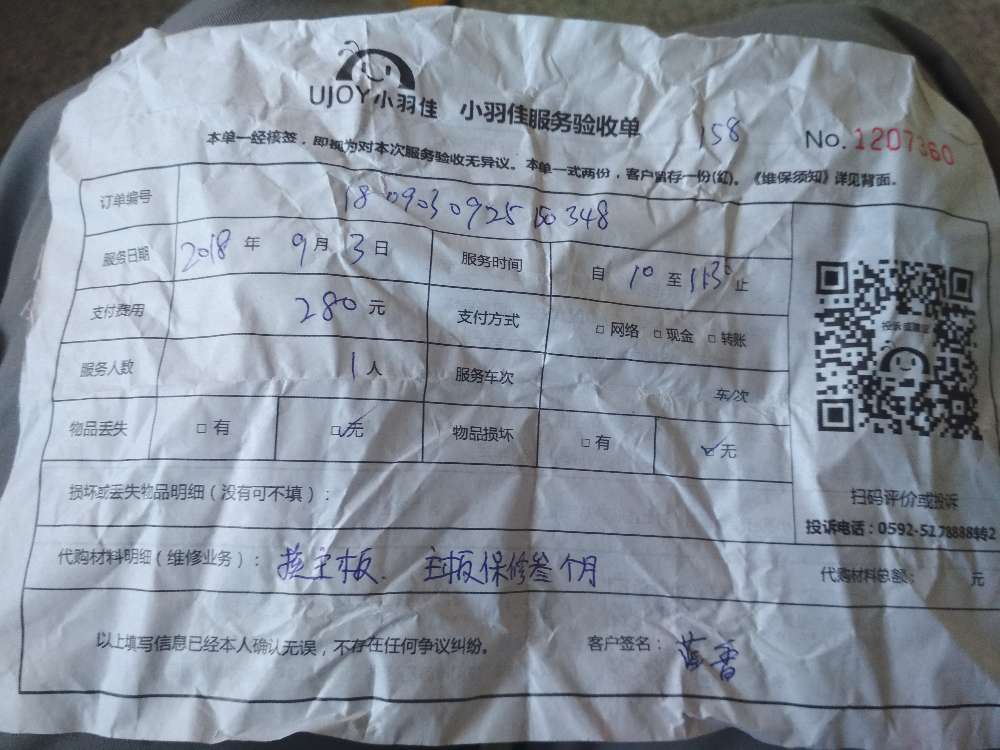 UJOY小羽佳 小羽佳服务验收单 158 No. 1207360
本单一经核签，即视为对本次服务验收无异议。本单一式两份，客户留存一份(红)。《维保须知》详见背面。
订单编号 180903092510348
服务日期 2018 年 9 月 3 日 服务时间 自 10 至 11:30 止
支付费用 280 元 支付方式 □ 网络 □ 现金 □ 转账
服务人数 1 人 服务车次 车/次
物品丢失 □ 有 ☑ 无 物品损坏 □ 有 ☑ 无
损坏或丢失物品明细（没有可不填）：
扫码评价或投诉
投诉电话：0592-5178888转2
代购材料明细（维修业务）： 换主板. 主板保修叁个月 代购材料总额： 元
以上填写信息已经本人确认无误，不存在任何争议纠纷。 客户签名：